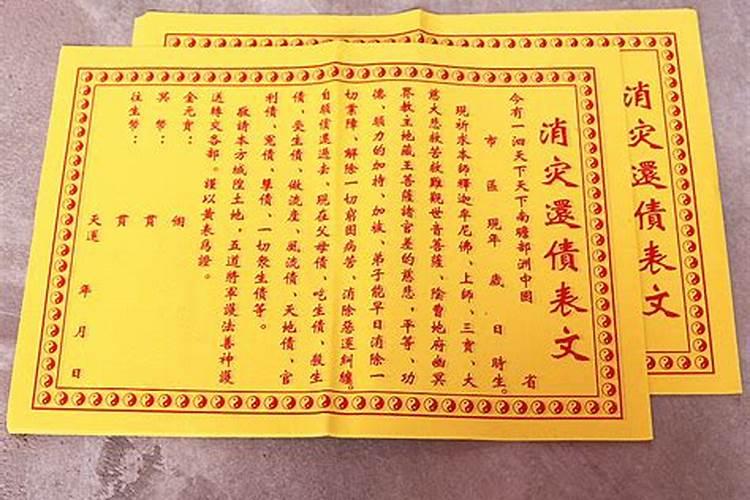 消灾還債表文
今有一泗天下天下南瞻部洲中国 省
市 區 現年 歲 日 時生。
現祈求本師釋迦牟尼佛、上師、三寶、大
慈大悲救苦救難觀世音菩薩、陰曹地府幽冥
界教主地藏王菩薩諸官差的慈悲，平等、功
德、願力的加持、加被、弟子能早日消除一
切業障、解除一切窮困病苦、消除惡運糾纏。
自願償還過去、現在父母債、吃生債、殺生
債、受生債、做流產、風流債、天地債、官
利債、冤債、孽債、一切眾生債等。
敬請本方城隍土地，五道將軍護法善神護
送轉交各部。謹以黄表爲證。
金元寶： 個
冥幣： 貫
往生幣： 貫
天運 年 月 日
消灾還債表文